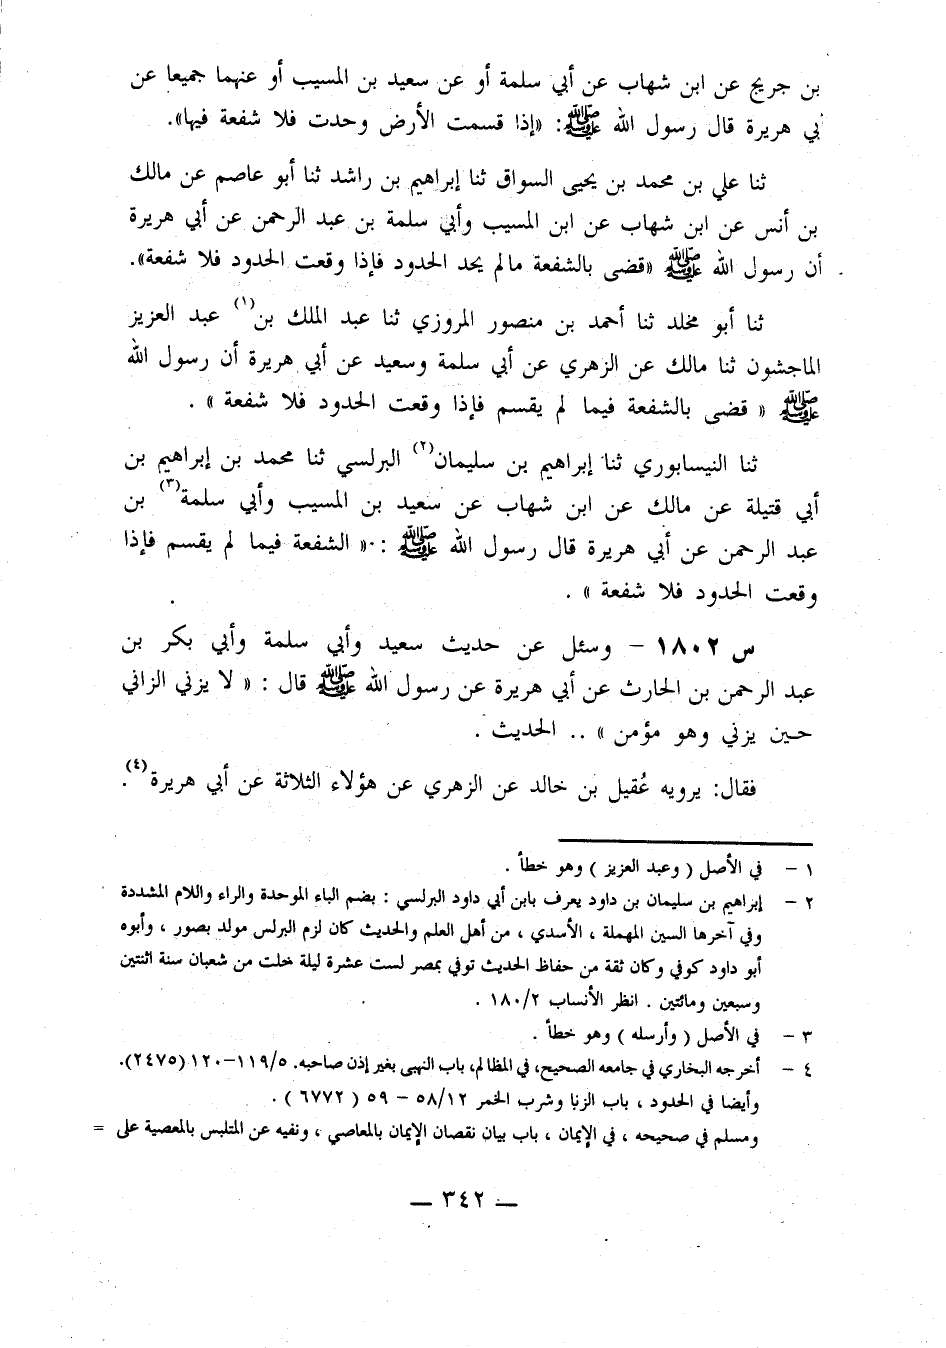 بن جريج عن ابن شهاب عن أبي سلمة أو عن سعيد بن المسيب أو عنهما جميعا عن
بي هريرة قال رسول الله ﷺ: «إذا قسمت الأرض وحدت فلا شفعة فيها».
ثنا علي بن محمد بن يحيى السواق ثنا إبراهيم بن راشد ثنا أبو عاصم عن مالك
بن أنس عن ابن شهاب عن ابن المسيب وأبي سلمة بن عبد الرحمن عن أبي هريرة
أن رسول الله ﷺ «قضى بالشفعة مالم يحد الحدود فإذا وقعت الحدود فلا شفعة».
ثنا أبو مخلد ثنا أحمد بن منصور المروزي ثنا عبد الملك بن(١) عبد العزيز
الماجشون ثنا مالك عن الزهري عن أبي سلمة وسعيد عن أبي هريرة أن رسول الله
ﷺ « قضى بالشفعة فيما لم يقسم فإذا وقعت الحدود فلا شفعة » .
ثنا النيسابوري ثنا إبراهيم بن سليمان(٢) البرلسي ثنا محمد بن إبراهيم بن
أبي قتيلة عن مالك عن ابن شهاب عن سعيد بن المسيب وأبي سلمة(٣) بن
عبد الرحمن عن أبي هريرة قال رسول الله ﷺ : « الشفعة فيما لم يقسم فإذا
وقعت الحدود فلا شفعة » .
س ١٨٠٢ – وسئل عن حديث سعيد وأبي سلمة وأبي بكر بن
عبد الرحمن بن الحارث عن أبي هريرة عن رسول الله ﷺ قال : « لا يزني الزاني
حين يزني وهو مؤمن » .. الحديث .
فقال: يرويه عُقيل بن خالد عن الزهري عن هؤلاء الثلاثة عن أبي هريرة(٤).
١ – في الأصل ( وعبد العزيز ) وهو خطأ .
٢ – إبراهيم بن سليمان بن داود يعرف بابن أبي داود البرلسي : بضم الباء الموحدة والراء واللام المشددة
وفي آخرها السين المهملة ، الأسدي ، من أهل العلم والحديث كان لزم البرلس مولد بصور ، وأبوه
أبو داود كوفي وكان ثقة من حفاظ الحديث توفي بمصر لست عشرة ليلة خلت من شعبان سنة اثنتين
وسبعين ومائتين . انظر الأنساب ١٨٠/٢ .
٣ – في الأصل ( وأرسله ) وهو خطأ .
٤ – أخرجه البخاري في جامعه الصحيح، في المظالم، باب النهبى بغير إذن صاحبه. ١١٩/٥–١٢٠ (٢٤٧٥).
وأيضا في الحدود ، باب الزنا وشرب الخمر ٥٨/١٢ – ٥٩ ( ٦٧٧٢ ) .
ومسلم في صحيحه ، في الإيمان ، باب بيان نقصان الإيمان بالمعاصي ، ونفيه عن المتلبس بالمعصية على =
— ٣٤٢ —